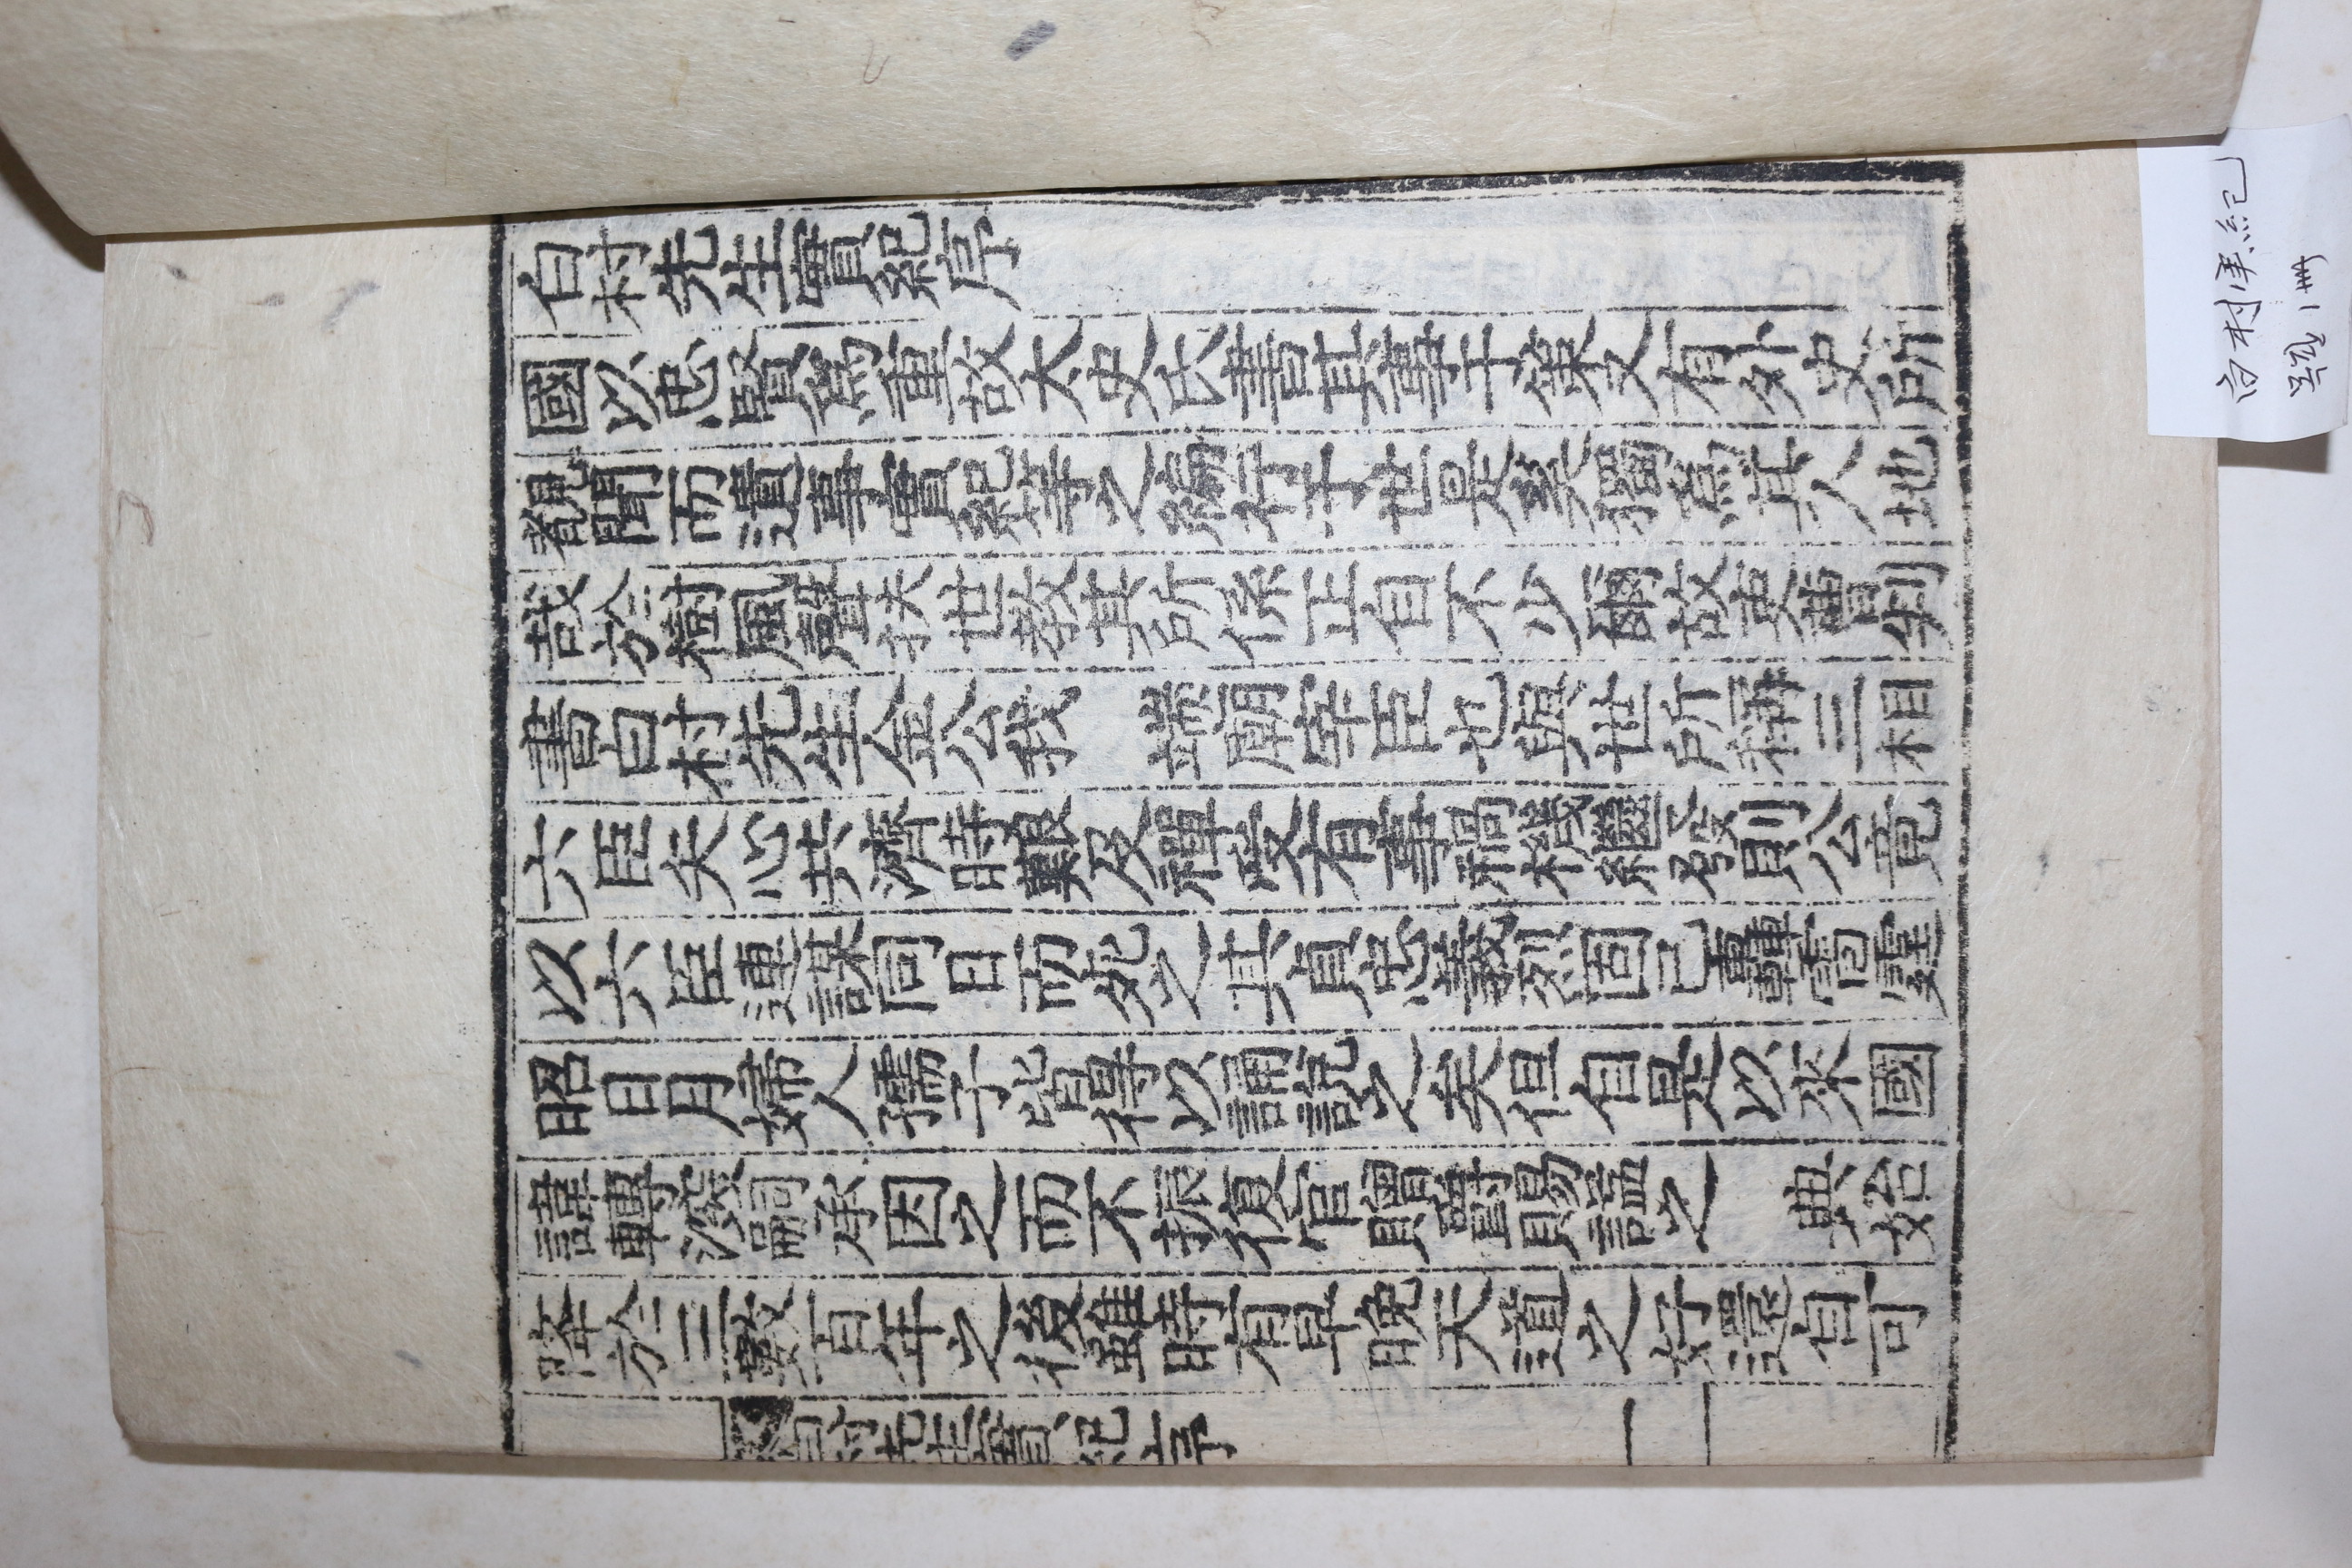 白村先生實紀序
國以忠賢爲重故太史氏書其事于策又有外史所
覩聞而遺事實紀等之編行于世是奚獨爲其人地
哉於樹風聲扶世教其所係正自不少爾故吏曹判
書白村先生金公我 端廟宰臣也與世所稱三相
六臣矢心共濟時艱及禪受有事禍機繼發則公竟
以六臣連謀同日而死之其貞忠義烈固已轟雷霆
昭日月婦人孺子皆得以誦說之矣但自是以來國
諱轉深嗣承因之而不振復官贈爵賜諡之 典始
降於三數百年之後雖時有早晩天道之好還自可
白村先生實紀序 一
白村実紀
목판 1冊